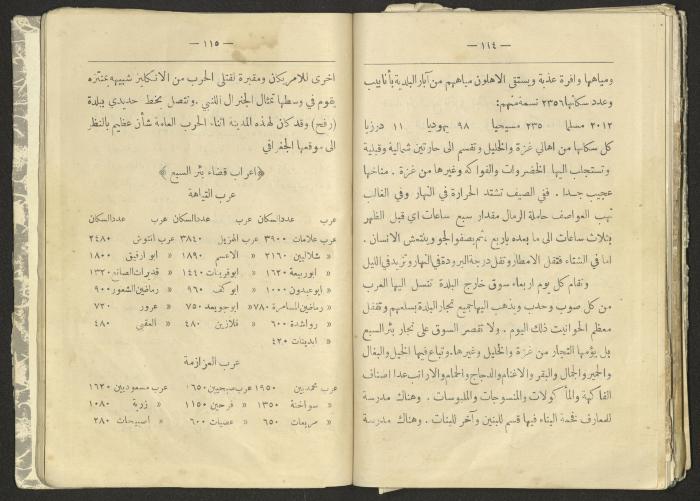 — ١١٤ —
ومياهها وافرة عذبة ويستقي الاهلون مياههم من آبار البلدية بأنابيب
وعدد سكانها ٢٣٥٦ نسمة منهم:
٢٠١٢ مسلما ٢٣٥ مسيحيا ٩٨ يهوديا ١١ درزيا
كل سكانها من اهالي غزة والخليل وتقسم الى حارتين شمالية وقبلية
وتستجلب اليها الخضروات والفواكه وغيرها من غزة . مناخها
عجيب جدا . ففي الصيف تشتد الحرارة في النهار وفي الغالب
تهب العواصف حاملة الرمال مقدار سبع ساعات اي قبل الظهر
بثلاث ساعات الى ما بعده باربع ، ثم يصفو الجو وينتعش الانسان .
اما في الشتاء فتقل الامطار وتقل درجة البرودة في النهار وتزيد في الليل
وتقام كل يوم اربعاء سوق خارج البلدة تنسل اليها العرب
من كل صوب وحدب ويذهب اليها جميع تجار البلدة بسلعهم وتقفل
معظم الحوانيت ذلك اليوم . ولا تقصر السوق على تجار بئر السبع
بل يؤمها التجار من غزة والخليل وغيرها . وتباع فيها الخيل والبغال
والحمير والجمال والبقر والاغنام والدجاج والحمام والارانب عدا اصناف
الفاكهة والمأكولات والمنسوجات والملبوسات . وهناك مدرسة
للمعارف فخمة البناء فيها قسم للبنين وآخر للبنات . وهناك مدرسة
— ١١٥ —
اخرى للاميركان ومقبرة لقتلى الحرب من الانكليز شبيهه بمنتزه
يقوم في وسطها تمثال الجنرال اللنبي . وتتصل بخط حديدي ببلدة
(رفح) وقد كان لهذه المدينة اثناء الحرب العامة شأن عظيم بالنظر
الى موقعها الجغرافي
﴿اعراب قضاء بئر السبع﴾
عرب التياهة
عرب عدد السكان عرب عدد السكان عرب عدد السكان
عرب علامات ٣٩٠٠ عرب الهزيل ٣٨٤٠ عرب انتوش ٢٤٨٠
« شلاليين ٢١٦٠ « الاعسم ١٨٩٠ « ابو رقيق ١٨٠٠
« ابو ربيعة ١٦٢٠ « ابو قرينات ١٤٤٠ « قديرات الصانع ١٣٢٠
« ابو عبدون ١٠٠٠ « ابو كف ٩٦٠ « رماضين الشعور ٩٠٠
« رماضين المسامرة ٧٨٠ « ابو جويعد ٧٥٠ « عرور ٧٢٠
« رواشدة ٦٠٠ « قلازين ٤٨٠ « العقبي ٤٨٠
« البدينات ٤٢٠
عرب العزازمة
عرب محمديين ١٩٥٠ عرب صبحيين ١٦٥٠ عرب مسعوديين ١٦٢٠
« سواخنة ١٣٥٠ « فرحين ١١٥٠ « زربة ١٠٨٠
« مريعات ٦٥٠ « عصيات ٦٠٠ « اصبيحات ٢٨٠